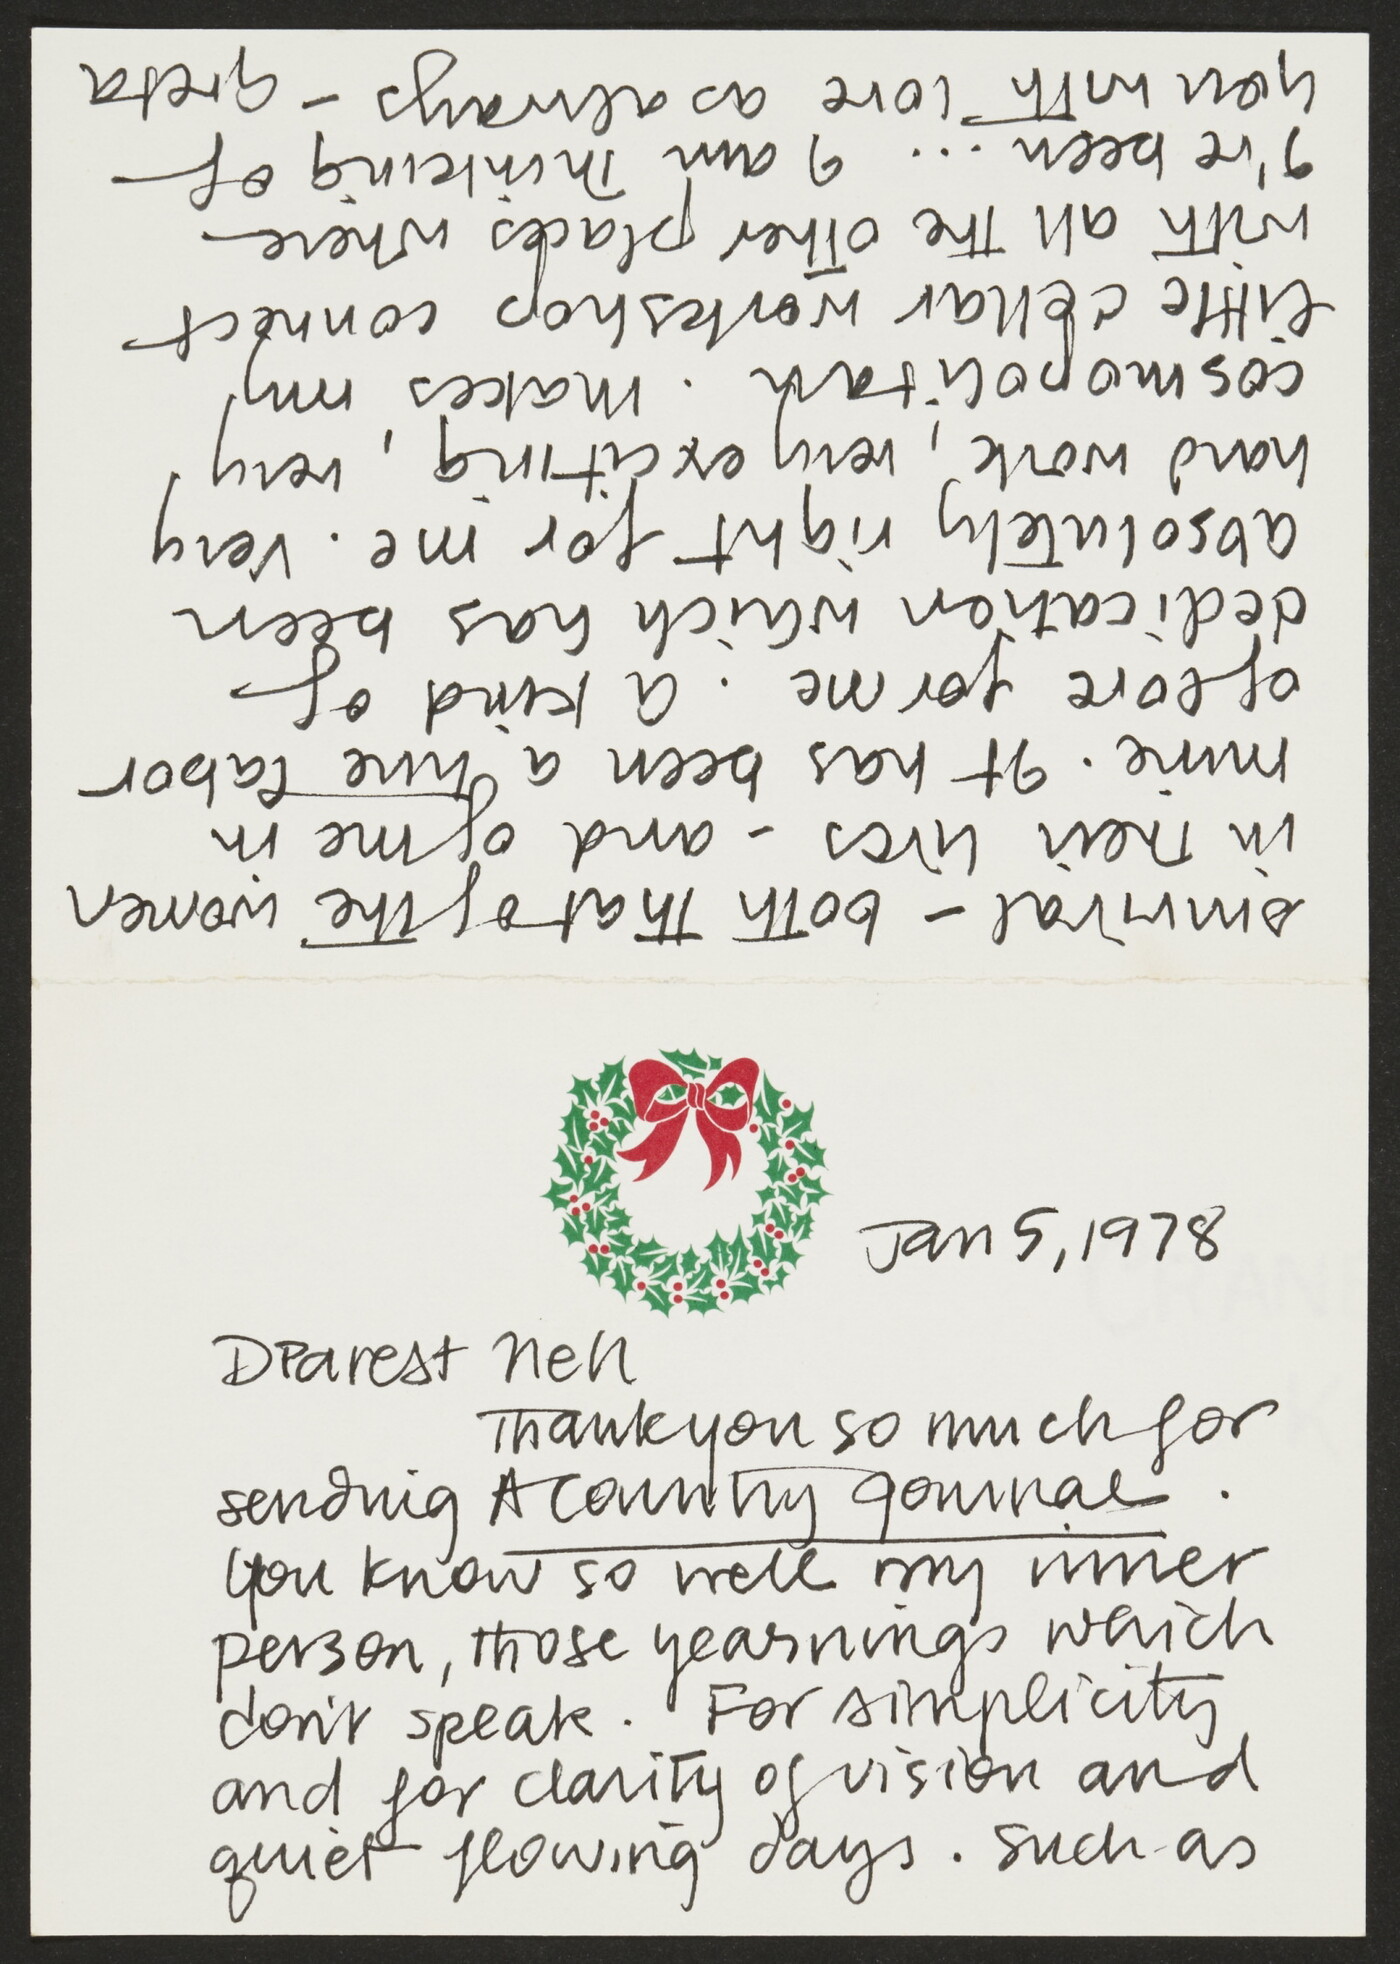 Jan 5, 1978
Dearest Nell
Thank you so much for
sending A Country Journal.
You know so well my inner
person, those yearnings which
don't speak. For simplicity
and for clarity of vision and
quiet flowing days. Such as
survival - both that of the women
in their lives - and of me in
mine. It has been a true labor
of love for me. A kind of
dedication which has been
absolutely right for me. Very
hard work, very exciting, very
cosmopolitan. Makes my
little cellar workshop connect
with all the other places where
I've been ... I am thinking of
you with love as always - Greta